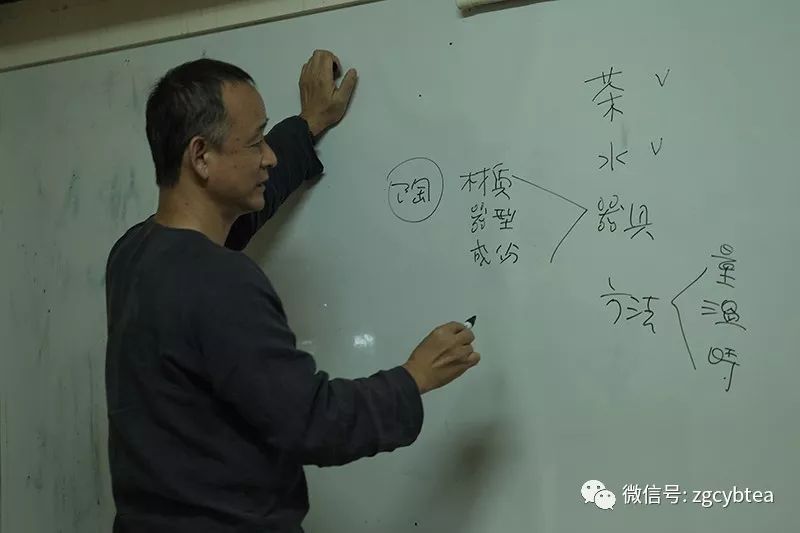 茶 ∨
水 ∨
陶
材质
器型
成份
器具
方法
量
温
時
微信号: zgcybtea